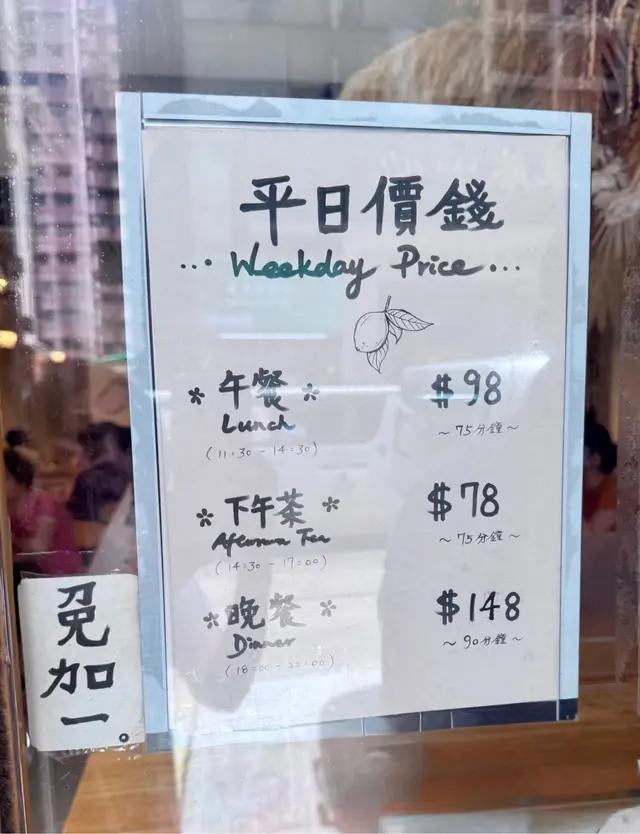 平日價錢
... Weekday Price ...
* 午餐 *
$98
Lunch
~ 75分鐘 ~
(11:30 - 14:30)
* 下午茶 *
$78
Afternoon Tea
~ 75分鐘 ~
(14:30 - 17:00)
* 晚餐 *
$148
Dinner
~ 90分鐘 ~
(18:00 - 22:00)
免
加
一。